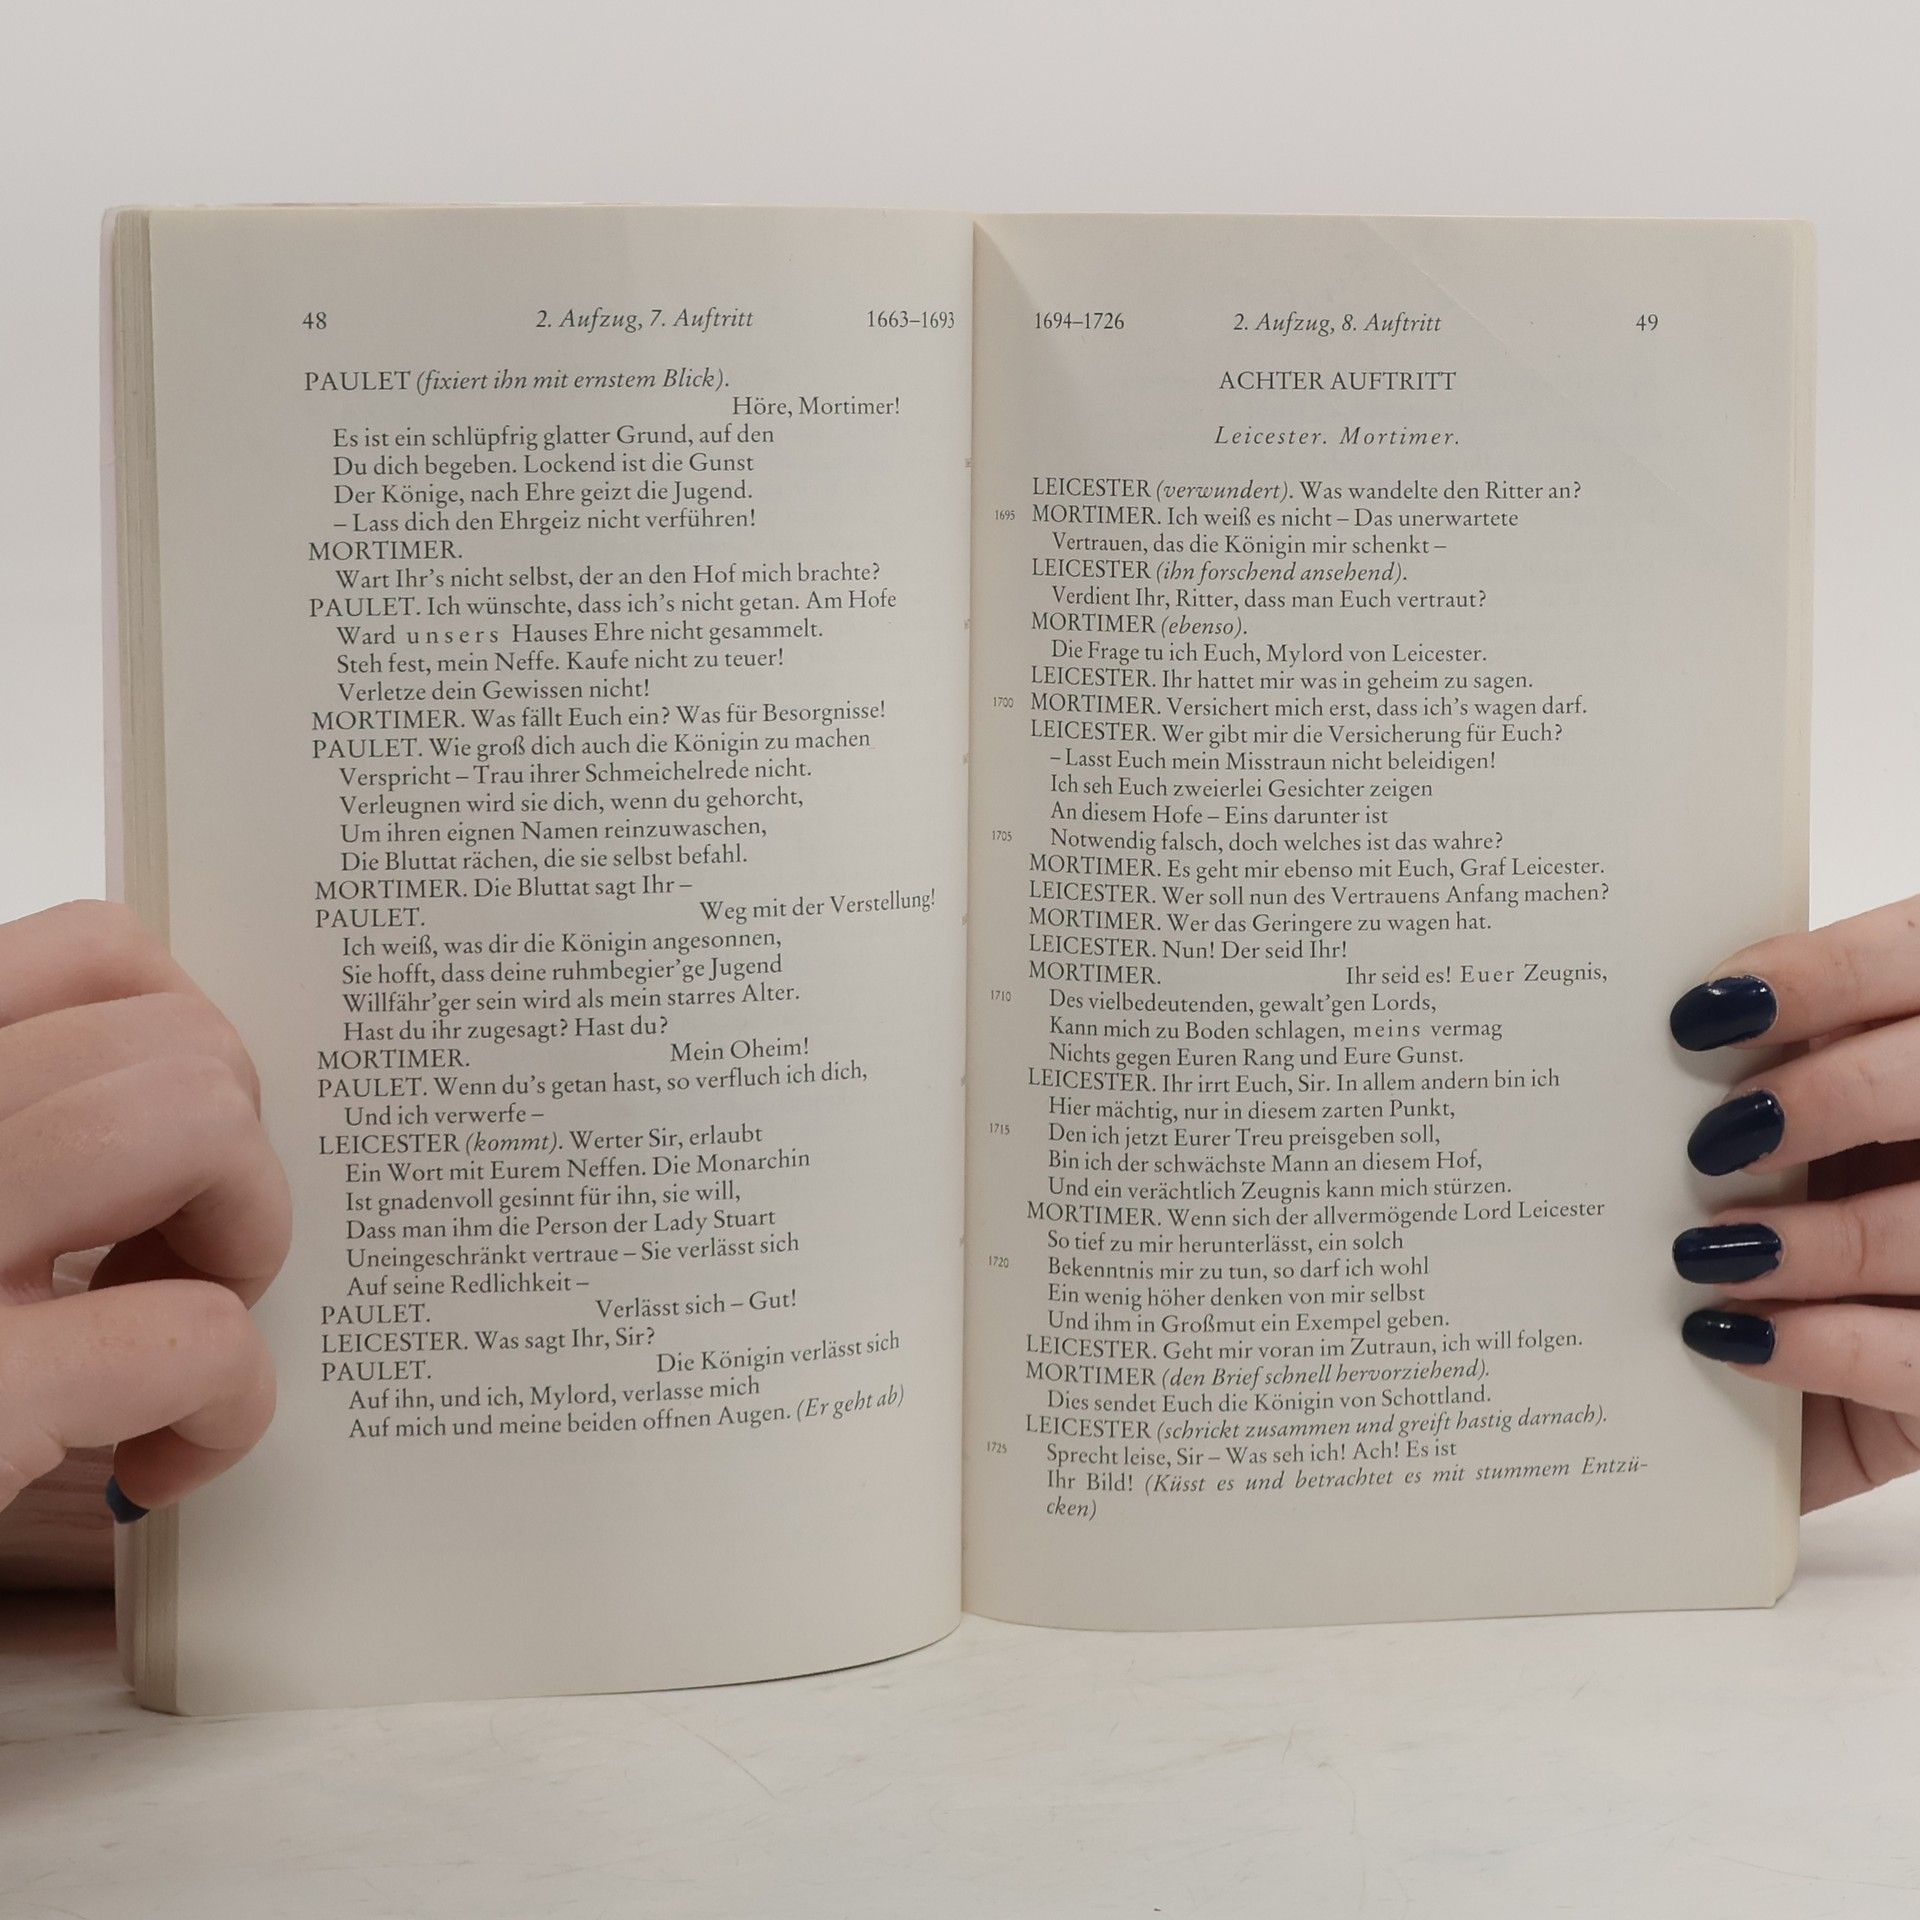 48 2. Aufzug, 7. Auftritt 1663–1693
PAULET (fixiert ihn mit ernstem Blick).
Höre, Mortimer!
Es ist ein schlüpfrig glatter Grund, auf den
Du dich begeben. Lockend ist die Gunst
Der Könige, nach Ehre geizt die Jugend.
– Lass dich den Ehrgeiz nicht verführen!
MORTIMER.
Wart Ihr’s nicht selbst, der an den Hof mich brachte?
PAULET. Ich wünschte, dass ich’s nicht getan. Am Hofe
Ward unsers Hauses Ehre nicht gesammelt.
Steh fest, mein Neffe. Kaufe nicht zu teuer!
Verletze dein Gewissen nicht!
MORTIMER. Was fällt Euch ein? Was für Besorgnisse!
PAULET. Wie groß dich auch die Königin zu machen
Verspricht – Trau ihrer Schmeichelrede nicht.
Verleugnen wird sie dich, wenn du gehorcht,
Um ihren eignen Namen reinzuwaschen,
Die Bluttat rächen, die sie selbst befahl.
MORTIMER. Die Bluttat sagt Ihr –
PAULET. Weg mit der Verstellung!
Ich weiß, was dir die Königin angesonnen,
Sie hofft, dass deine ruhmbegier’ge Jugend
Willfähr’ger sein wird als mein starres Alter.
Hast du ihr zugesagt? Hast du?
MORTIMER. Mein Oheim!
PAULET. Wenn du’s getan hast, so verfluch ich dich,
Und ich verwerfe –
LEICESTER (kommt). Werter Sir, erlaubt
Ein Wort mit Eurem Neffen. Die Monarchin
Ist gnadenvoll gesinnt für ihn, sie will,
Dass man ihm die Person der Lady Stuart
Uneingeschränkt vertraue – Sie verlässt sich
Auf seine Redlichkeit –
PAULET. Verlässt sich – Gut!
LEICESTER. Was sagt Ihr, Sir?
PAULET. Die Königin verlässt sich
Auf ihn, und ich, Mylord, verlasse mich
Auf mich und meine beiden offnen Augen. (Er geht ab)
1694–1726 2. Aufzug, 8. Auftritt 49
ACHTER AUFTRITT
Leicester. Mortimer.
LEICESTER (verwundert). Was wandelte den Ritter an?
1695 MORTIMER. Ich weiß es nicht – Das unerwartete
Vertrauen, das die Königin mir schenkt –
LEICESTER (ihn forschend ansehend).
Verdient Ihr, Ritter, dass man Euch vertraut?
MORTIMER (ebenso).
Die Frage tu ich Euch, Mylord von Leicester.
LEICESTER. Ihr hattet mir was in geheim zu sagen.
1700 MORTIMER. Versichert mich erst, dass ich’s wagen darf.
LEICESTER. Wer gibt mir die Versicherung für Euch?
– Lasst Euch mein Misstraun nicht beleidigen!
Ich seh Euch zweierlei Gesichter zeigen
An diesem Hofe – Eins darunter ist
1705 Notwendig falsch, doch welches ist das wahre?
MORTIMER. Es geht mir ebenso mit Euch, Graf Leicester.
LEICESTER. Wer soll nun des Vertrauens Anfang machen?
MORTIMER. Wer das Geringere zu wagen hat.
LEICESTER. Nun! Der seid Ihr!
MORTIMER. Ihr seid es! Euer Zeugnis,
1710 Des vielbedeutenden, gewalt’gen Lords,
Kann mich zu Boden schlagen, meins vermag
Nichts gegen Euren Rang und Eure Gunst.
LEICESTER. Ihr irrt Euch, Sir. In allem andern bin ich
Hier mächtig, nur in diesem zarten Punkt,
1715 Den ich jetzt Eurer Treu preisgeben soll,
Bin ich der schwächste Mann an diesem Hof,
Und ein verächtlich Zeugnis kann mich stürzen.
MORTIMER. Wenn sich der allvermögende Lord Leicester
So tief zu mir herunterlässt, ein solch
1720 Bekenntnis mir zu tun, so darf ich wohl
Ein wenig höher denken von mir selbst
Und ihm in Großmut ein Exempel geben.
LEICESTER. Geht mir voran im Zutraun, ich will folgen.
MORTIMER (den Brief schnell hervorziehend).
Dies sendet Euch die Königin von Schottland.
LEICESTER (schrickt zusammen und greift hastig darnach).
1725 Sprecht leise, Sir – Was seh ich! Ach! Es ist
Ihr Bild! (Küsst es und betrachtet es mit stummem Entzü-
cken)